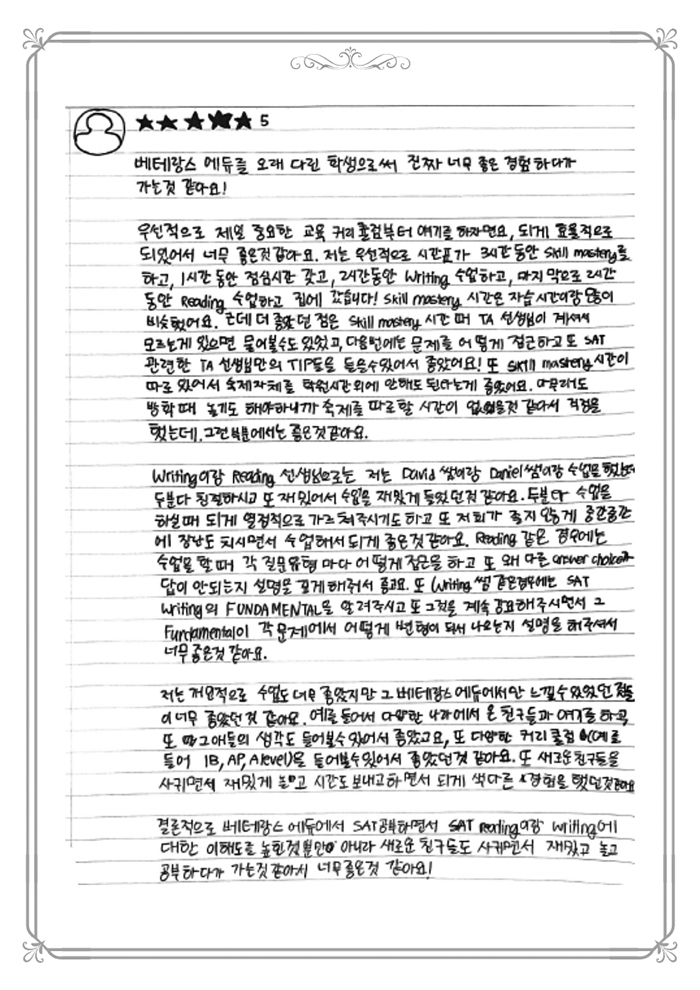 ★★★★★ 5
베테랑스 에듀를 오래 다닌 학생으로써 진짜 너무 좋은 경험하다가
가는것 같아요!
우선적으로 제일 중요한 교육 커리큘럼부터 얘기를 하자면요, 되게 효율적으로
되있어서 너무 좋은것같아요. 저는 우선적으로 시간표가 3시간동안 skill mastery를
하고, 1시간 동안 점심시간 갖고, 2시간동안 Writing 수업하고, 마지막으로 2시간
동안 Reading 수업하고 집에 갔습니다! Skill mastery 시간은 자습시간이랑 많이
비슷했어요. 근데 더 좋았던 점은 Skill mastery 시간 때 TA 선생님이 계셔서
모르는게 있으면 물어볼수도 있었고, 다음번에는 문제를 어떻게 접근하고 또 SAT
관련한 TA 선생님만의 TIP들을 들을수있어서 좋았어요! 또 skill mastery 시간이
따로 있어서 숙제자체를 학원시간외에 안해도 된다는게 좋았어요. 아무래도
방학 때 놀기도 해야하니까 숙제를 따로할 시간이 없을것 같아서 걱정을
했는데, 그런부분에서는 좋은것같아요.
Writing이랑 Reading 선생님으로는 저는 David쌤이랑 Daniel쌤이랑 수업을 했는데
두분다 친절하시고 또 재밌어서 수업을 재밌게 들었던것 같아요. 두분다 수업을
하실때 되게 열정적으로 가르쳐주시기도 하고 또 저희가 졸지 않게 중간중간
에 장난도 치시면서 수업해서 되게 좋은것 같아요. Reading 같은 경우에는
수업을 할 때 각 질문유형 마다 어떻게 접근을 하고 또 왜 다른 answer choice가
답이 안되는지 설명을 깊게 해줘서 좋고요. 또 Writing 쌤 같은경우에는 SAT
Writing의 FUNDAMENTAL을 알려주시고 또 그것을 계속 강요해주시면서 그
Fundamental이 각 문제에서 어떻게 변형이 되서 나오는지 설명을 해주셔서
너무 좋은것 같아요.
저는 개인적으로 수업도 너무 좋았지만 그 베테랑스 에듀에서만 느낄수있었던 것들
이 너무 좋았던것 같아요. 예를 들어서 다양한 나라에서 온 친구들과 얘기를 하고,
또 그 애들의 생각도 들어볼수있어서 좋았고요, 또 다양한 커리큘럼 (예를
들어 IB, AP, A level)을 들어볼수있어서 좋았던것 같아요. 또 새로운 친구들을
사귀면서 재밌게 놀고 시간도 보내고하면서 되게 색다른 경험을 했던것같아요
결론적으로 베테랑스 에듀에서 SAT공부하면서 SAT reading이랑 writing에
대한 이해도를 높힌것뿐만 아니라 새로운 친구들도 사귀면서 재밌고 놀고
공부하다가 가는것같아서 너무 좋은것 같아요!